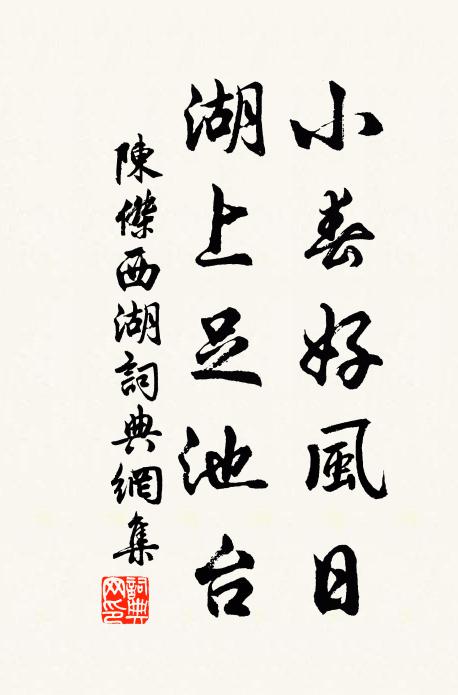 小春好風日
湖上足池台
陳傑西湖詞典網集
詞典網印